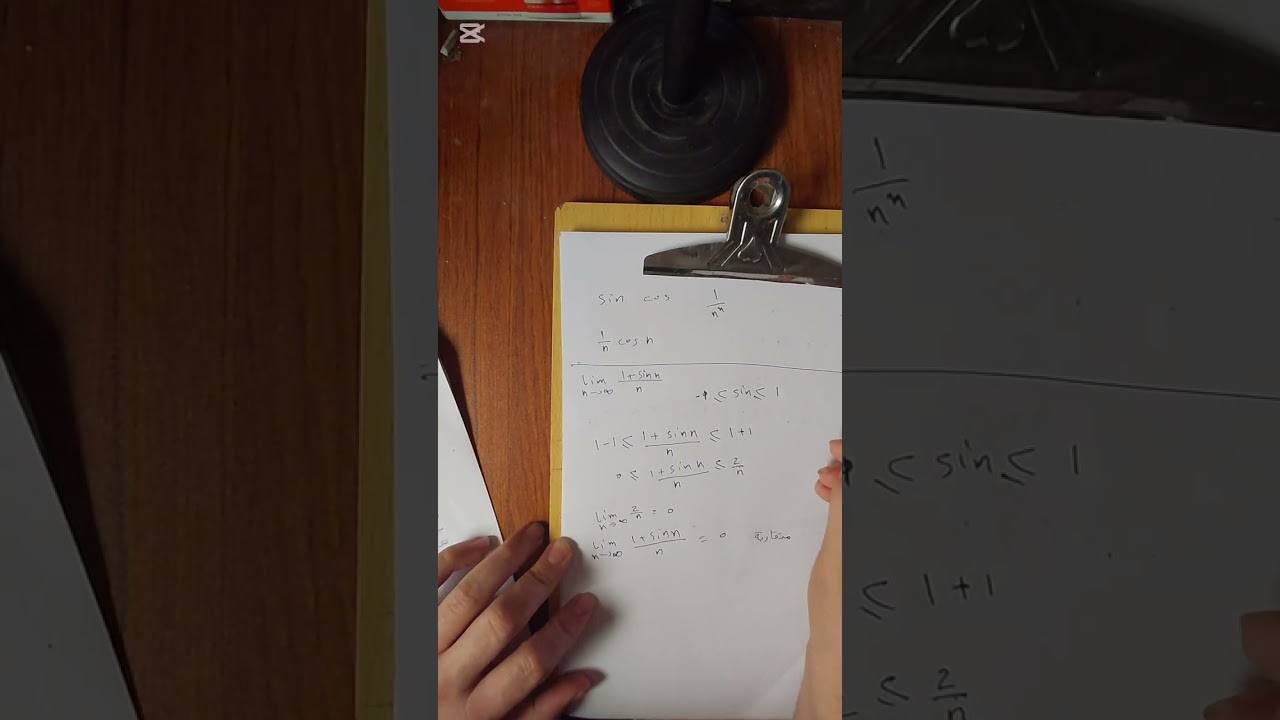 sin cos 1/n^n
1/n cos n
lim n→∞ (1+sin n)/n
-1 ≤ sin ≤ 1
1-1 ≤ (1+sin n)/n ≤ 1+1
0 ≤ (1+sin n)/n ≤ 2/n
lim n→∞ 2/n = 0
lim n→∞ (1+sin n)/n = 0 متقاربة